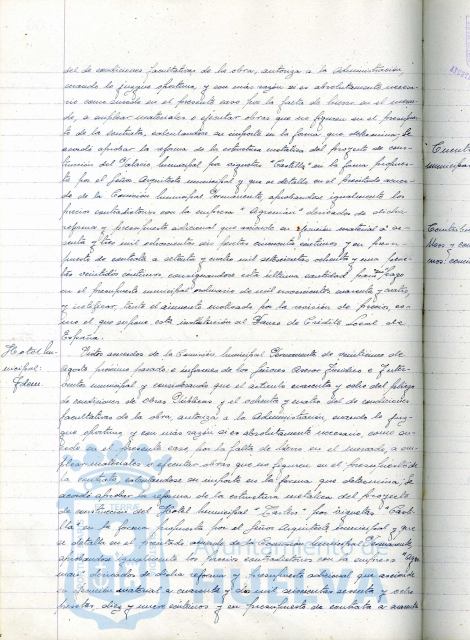 sel de condiciones facultativas de la obra, autoriza a la Administración
cuando lo juzgue oportuno, y con más razón si es absolutamente necesa-
rio como sucede en el presente caso por la falta de hierro en el merca-
do, a emplear materiales o ejecutar obras que no figuren en el presupues-
to de la contrata, valorándose su importe en la forma que determina; Se
acordó aprobar la reforma de la estructura metálica del proyecto de cons-
trucción del Palacio municipal por viguetas "Castilla" en la forma propues-
ta por el Señor Arquitecto municipal y que se detalla en el precitado acuer-
do de la Comisión Municipal Permanente, aprobándose igualmente los
precios contradictorios con la empresa "Agromán" derivados de dicha
reforma y presupuesto adicional que asciende en ejecución material a se-
senta y tres mil seiscientos seis pesetas cuarenta céntimos y en presu-
puesto de contrata a setenta y cuatro mil setecientas ochenta y una pese-
tas veintidós céntimos consignándose esta última cantidad para pago
en el presupuesto municipal ordinario de mil novecientos cuarenta y cuatro,
y satisfacer, tanto el aumento motivado por la revisión de precios, co-
mo el que supone esta instalación al Banco de Crédito Local de
España.
Hotel Mu-
nicipal:
Idem.
Visto acuerdo de la Comisión Municipal Permanente de veintiuno de
Agosto próximo pasado e informes de los Señores Asesor Jurídico e Inter-
ventor municipal y considerando que el artículo cuarenta y ocho del pliego
de condiciones de Obras Públicas y el ochenta y cuatro del de condiciones
facultativas de la obra, autoriza a la Administración, cuando lo juz-
gue oportuno y con más razón si es absolutamente necesario, como su-
cede en el presente caso, por la falta de hierro en el mercado, a em-
plear materiales o ejecutar obras que no figuren en el presupuesto de
la contrata valorándose su importe en la forma que determina; Se
acordó aprobar la reforma de la estructura metálica del proyecto
de construcción del Hotel Municipal "Tartes" por viguetas "Casti-
lla" en la forma propuesta por el Señor Arquitecto municipal y que
se detalla en el precitado acuerdo de la Comisión Municipal Permanente,
aprobándose igualmente los precios contradictorios con la empresa "Agro-
mán" derivados de dicha reforma y presupuesto adicional que asciende
en ejecución material a cuarenta y dos mil seiscientas sesenta y ocho
pesetas, diez y nueve céntimos y en presupuesto de contrata a cuarenta
Ayuntamiento de
HUELVA